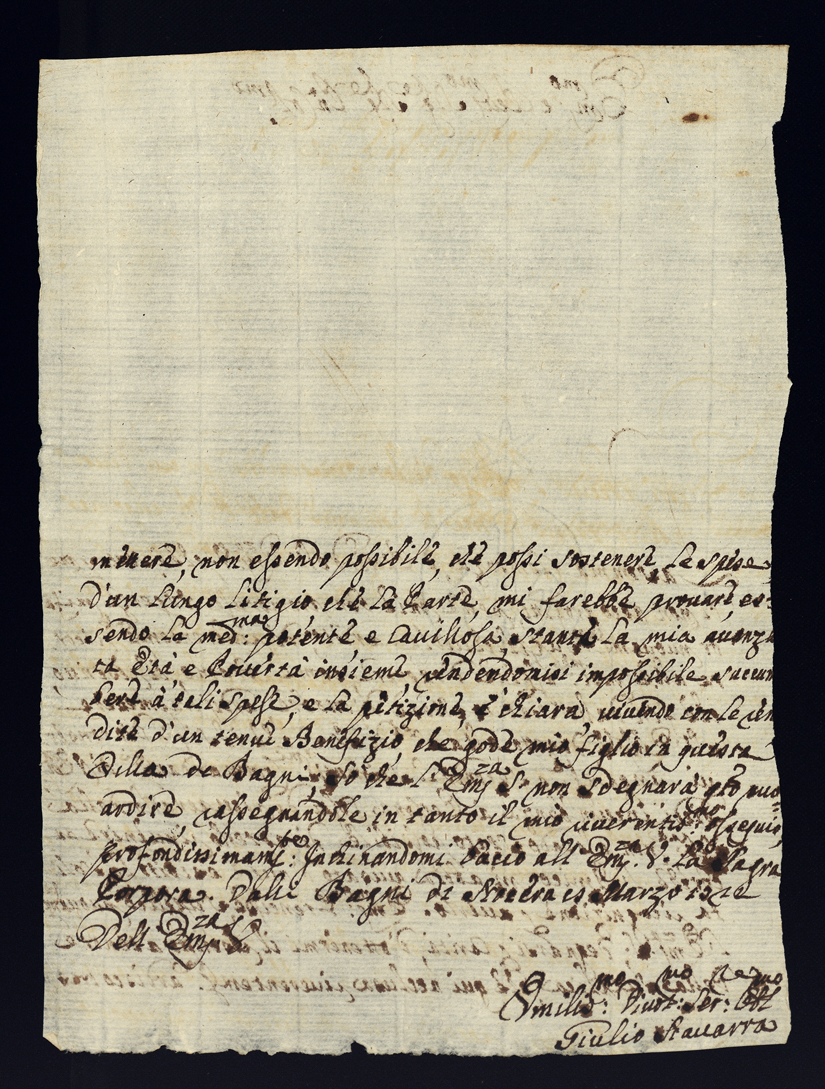 mettere, non essendo possibile, che possi sostenere le spese
d'un lungo litigio che la Parte, mi farebbe provare, es-
sendo la med:ma potente e cavillosa, stante la mia avanza
ta Età e Povertà insieme rendendomisi impossibile succum
bere à tali spese, e la petizione, è chiara vivendo con le ren
dite d'un tenue Benefizio, che gode mio figlio in questa
Villa de Bagni, so che l'Emza S. non sdegnarà
ardire rassegnandole in tanto il mio riverentismo ossequio
profondissimamte: Inchinandomi bacio all Emza V. la Sagra
Porpora. Dalli Bagni di Marzo
Dell Emza V.
Umilismo: Divotmo: Ser:re Obmo
Giulio Navarra